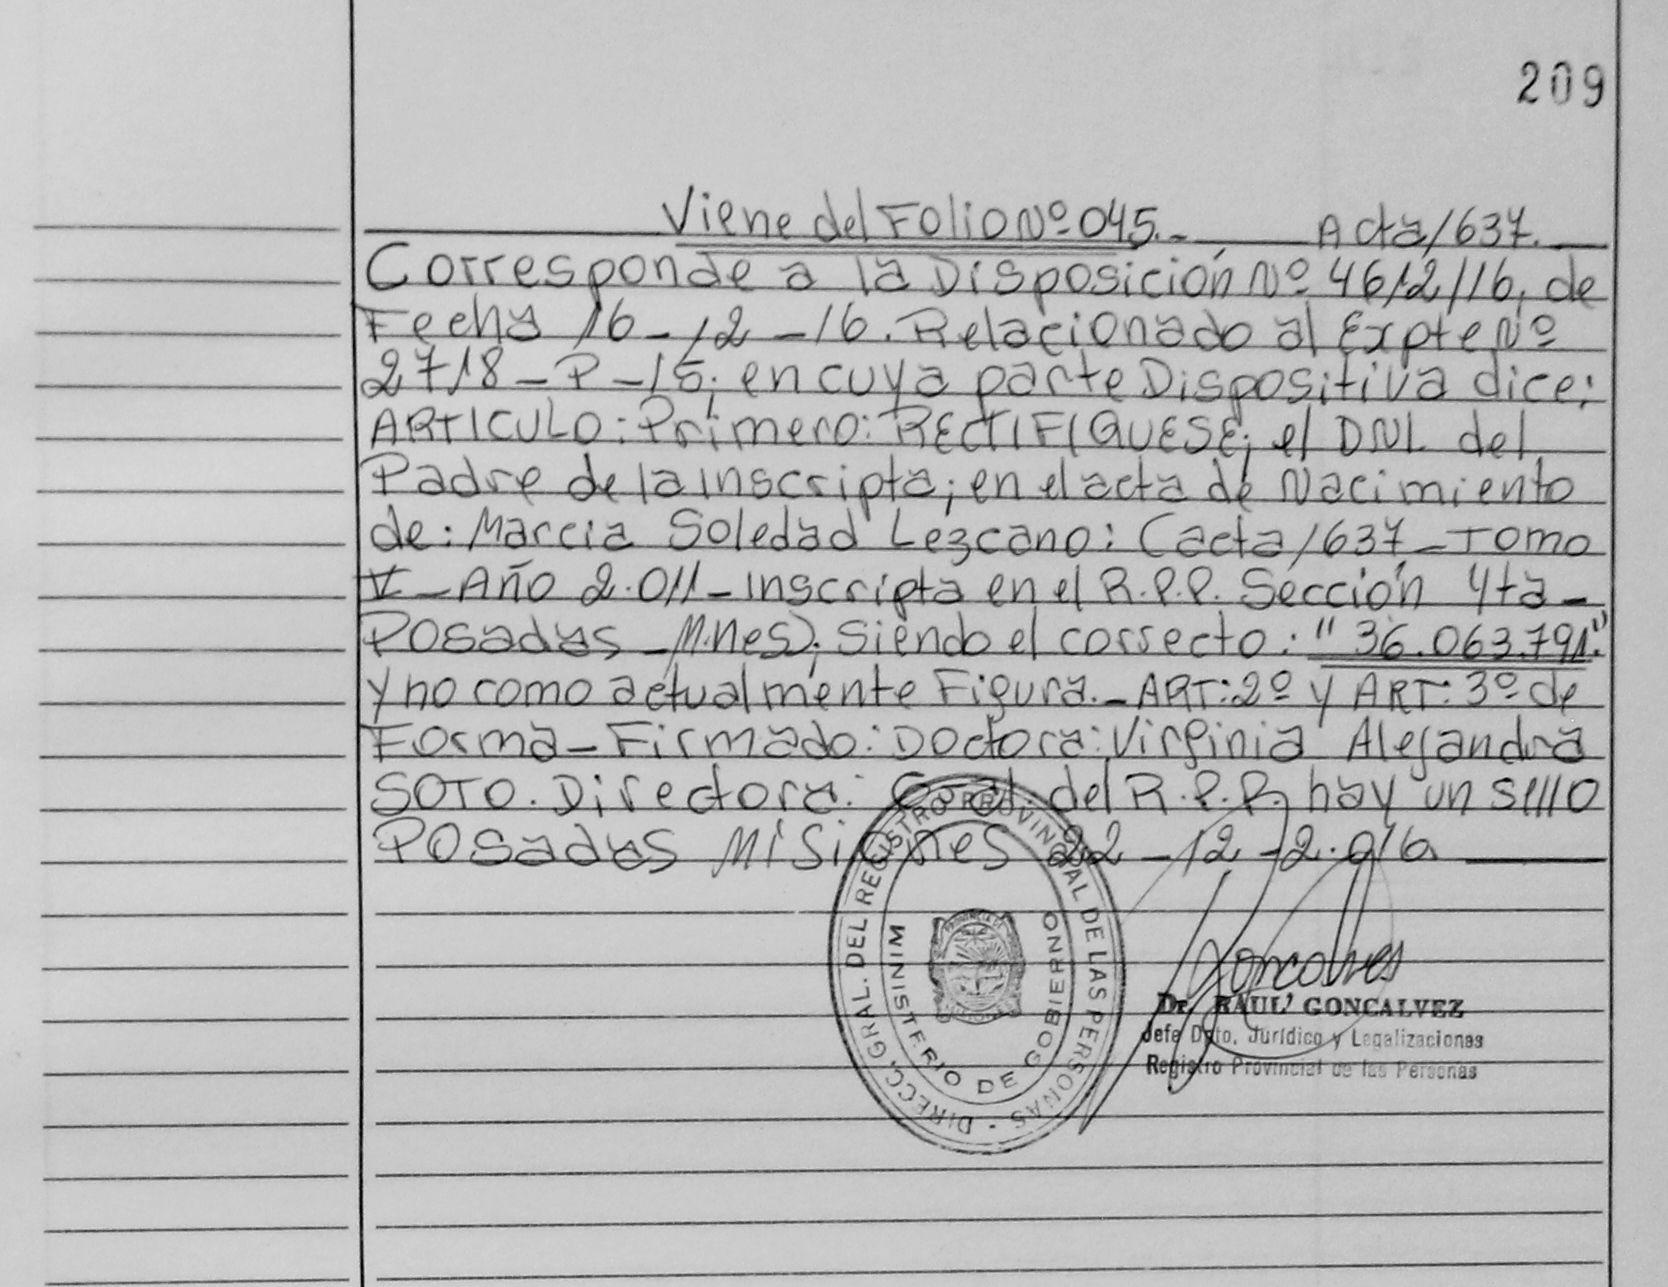 209
Viene del Folio Nº 045.- Acta/637.
Corresponde a la Disposición Nº 4612/16, de
Fecha 16-12-16. Relacionado al Expte Nº
2718-P-15; en cuya parte Dispositiva dice:
ARTICULO: Primero: RECTIFIQUESE; el DNI. del
Padre de la inscripta; en el acta de Nacimiento
de: Marcia Soledad Lezcano: (acta/637-Tomo
V-Año 2.011-inscripta en el R.P.P. Sección 4ta-
Posadas-M.nes); Siendo el correcto: "36.063.791."
y no como actualmente Figura.-ART:2º y ART:3º de
Forma-Firmado: Doctora: Virginia Alejandra
SOTO. Directora: Gral. del R.P.P. hay un sello
Posadas Misiones 22-12-2.016
DIRECC. GRAL. DEL REGISTRO PROVINCIAL DE LAS PERSONAS -
MINISTERIO DE GOBIERNO
Goncalves
Dr. RAUL GONCALVEZ
Jefe Dpto. Jurídico y Legalizaciones
Registro Provincial de las Personas